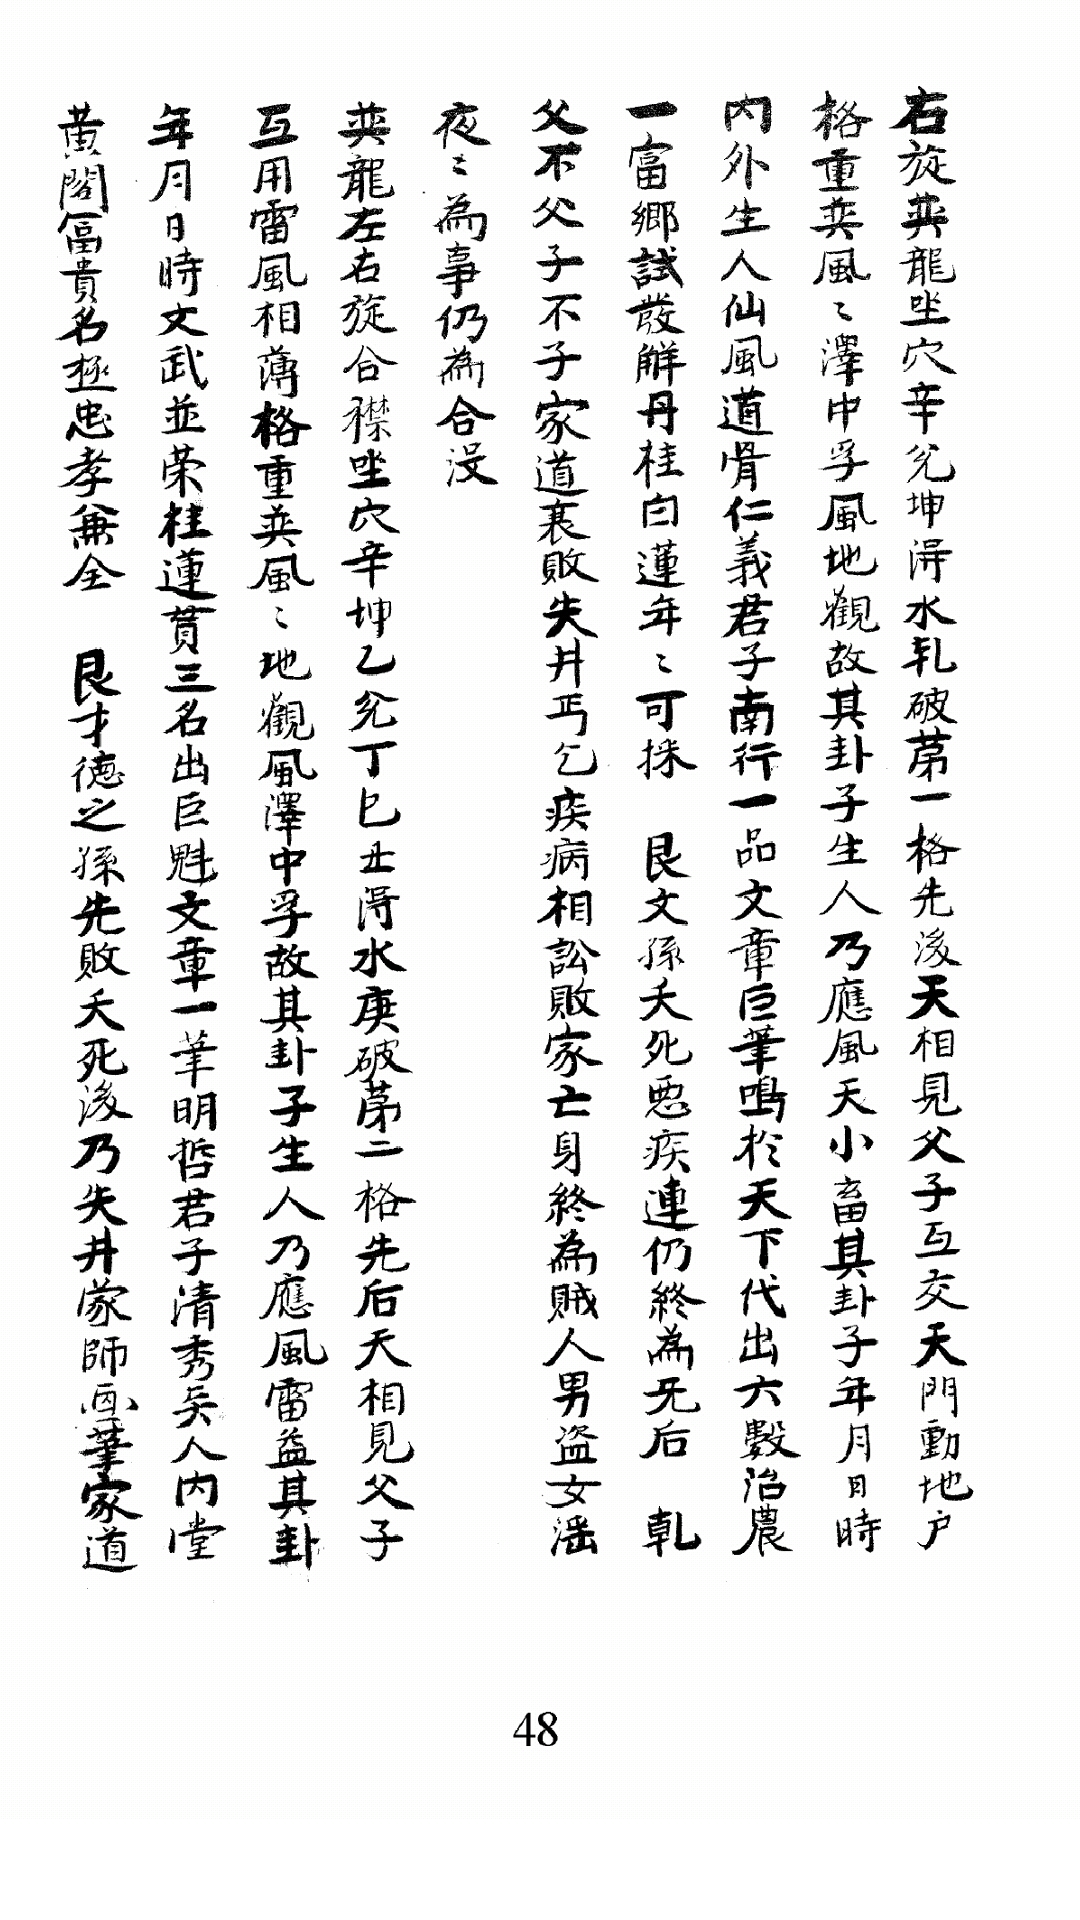 右旋巽龍坐穴辛兊坤淂水乹破苐一格先後天相見父子互交天門動地户
格重巽風〻澤中孚風地觀故其卦子生人乃應風天小畜其卦子年月日時
内外生人仙風道骨仁義君子南行一品文章巨筆鳴於天下代出六數治農
一富鄉試發觧丹桂曰蓮年〻可採 艮文孫夭死惡疾連仍終為无后 乹
父不父子不子家道衰敗失井丐乞疾病相訟敗家亡身終為賊人男盗女滛
夜〻為事仍為合沒
巽龍左右旋合襟坐穴辛坤乙兊丁巳丑淂水庚破苐二格先后天相見父子
互用雷風相薄格重巽風〻地觀風澤中孚故其卦子生人乃應風雷益其卦
年月日時文武並荣桂蓮貫三名出巨魁文章一筆明哲君子清秀吴人内堂
黄閣冨貴名極忠孝兼全 艮才德之孫先敗夭死後乃失井蒙師画筆家道
48